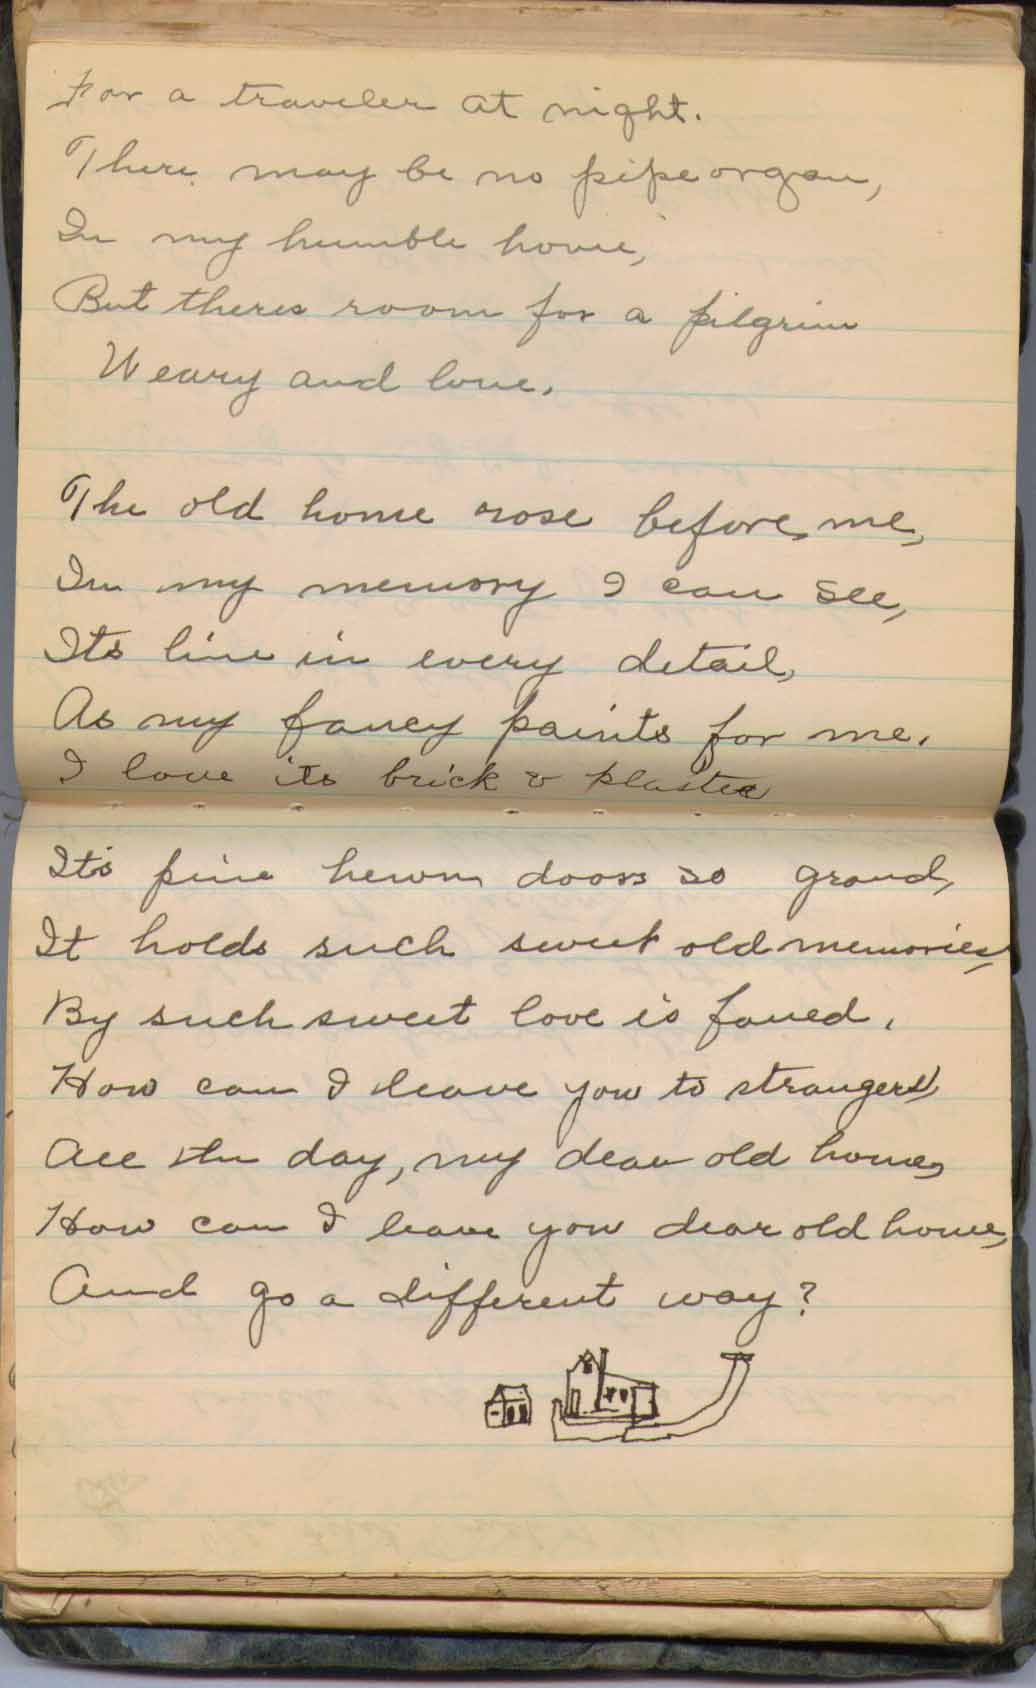 For a traveler at night.
There may be no pipe organ,
In my humble home,
But theres room for a pilgrim
Weary and lone.
The old home rose before me,
In my memory I can see,
Its line in every detail,
As my fancy paints for me.
I love its brick & plaster
It's pine hewn doors so grand,
It holds such sweet old memories,
By such sweet love is faned.
How can I leave you to strangers,
All the day, my dear old home,
How can I leave you dear old home,
And go a different way?